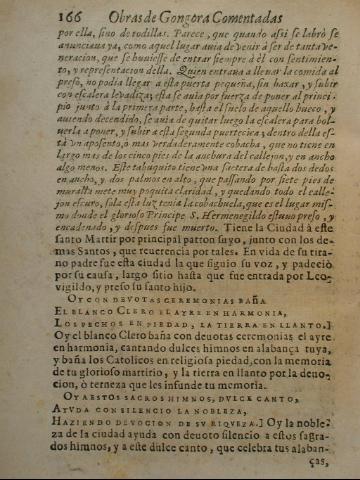 166 Obras de Gongora Comentadas
por ella, sino de rodillas. Parece, que quando assi se labrò se
anunciaua ya, como aquel lugar auia de venir à ser de tanta ve-
neracion, que se huuiesse de entrar siempre à el con sentimien-
to, y representacion della. Quien entraua a llenar la comida al
preso, no podia llegar a esta puerta pequeña, sin baxar, y subir
con escalera leuadiza; esta se auia por fuerza de poner al princi-
pio junto à la primera parte, hasta el suelo de aquello hueco, y
auiendo decendido, se auia de quitar luego la escalera para bol-
uerla a poner, y subir à esta segunda puertecica; dentro della es-
tà vn aposento, o mas verdaderamente cobacha, que no tiene en
largo mas de los cinco pies de la anchura del callejon, y en ancho
algo menos. Este tabuquito tiene vna saetera de hasta dos dedos
en ancho, y dos palmos en alto, que passando por siete pies de
muralla mete muy poquita claridad, y quedando todo el calle-
jon escuro, sola esta luz tenia la cobachuela, que es el lugar mis-
mo donde el glorioso Principe S. Hermenegildo estuuo preso, y
encadenado, y despues fue muerto. Tiene la Ciudad à este
santo Martir por principal patron suyo, junto con los de-
mas Santos, que reuerencia por tales. En vida de su tira-
no padre fue esta ciudad la que siguio su voz, y padeciò
por su causa, largo sitio hasta que fue entrada por Leo-
vigildo, y preso su santo hijo.
OY CON DEVOTAS CEREMONIAS BAÑA
EL BLANCO CLERO EL AYRE EN HARMONIA,
LOS PECHOS EN PIEDAD, LA TIERRA EN LLANTO.]
Oy el blanco Clero baña con deuotas ceremonias el ayre
en harmonia, cantando dulces himnos en alabança tuya,
y baña los Catolicos en religiosa piedad, con la memoria
de tu glorioso martirio, y la tierra en llanto por la deuo-
cion, ò terneza que les infunde tu memoria.
OY A ESTOS SACROS HIMNOS, DVLCE CANTO,
AYVDA CON SILENCIO LA NOBLEZA,
HAZIENDO DEVOCION DE SV RIQVEZA.] Oy la noble-
za de la ciudad ayuda con deuoto silencio a estos sagra-
dos himnos, y a este dulce canto, que celebra tus alaban-
ças,